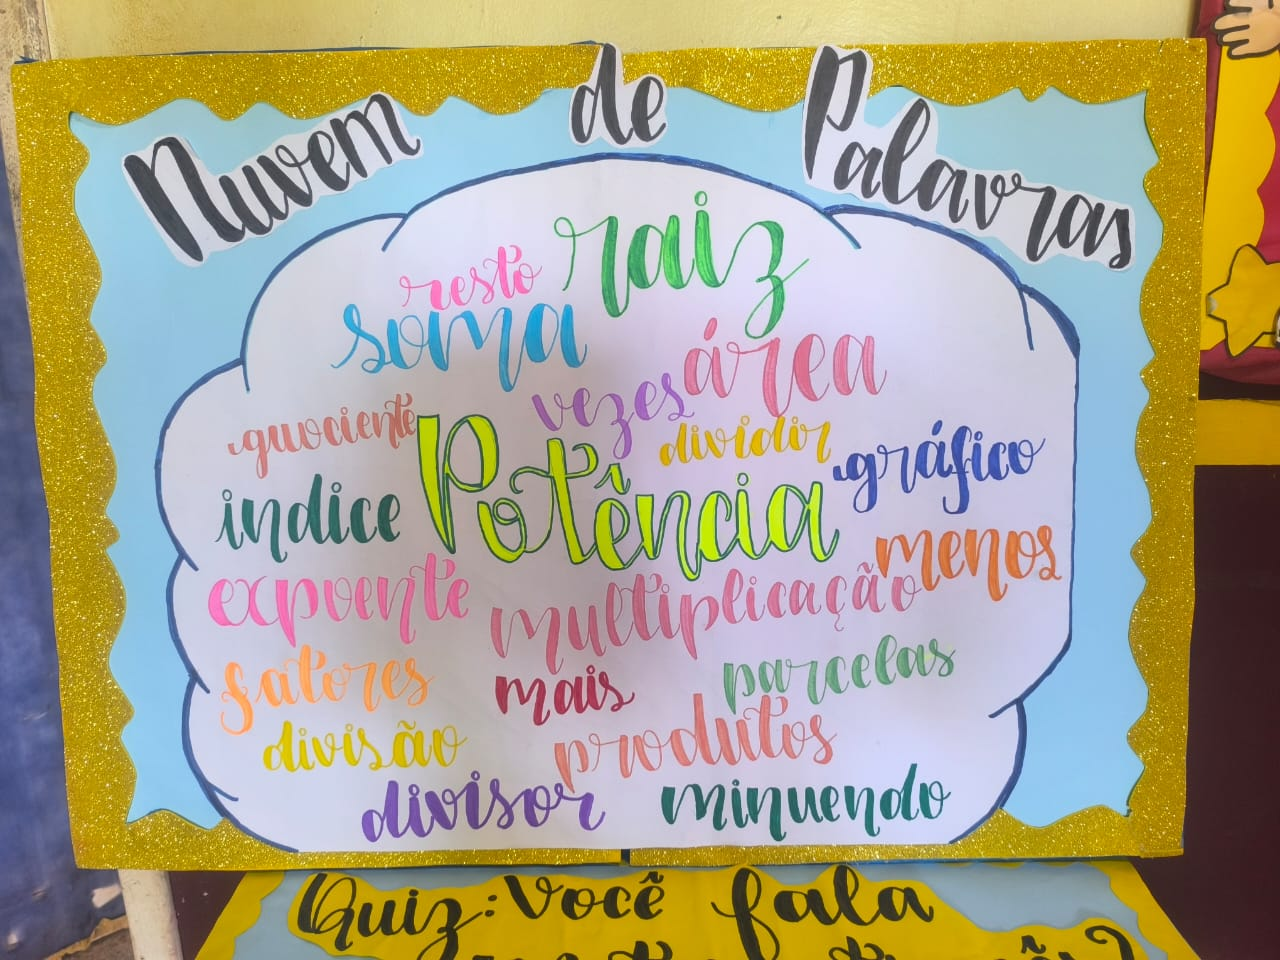 Nuvem de Palavras
raiz
resto
soma
área
vezes
quociente
dividir
Potência
gráfico
indice
menos
expoente
multiplicação
fatores
mais
parcelas
divisão
produtos
divisor
minuendo
Quiz: Você fala